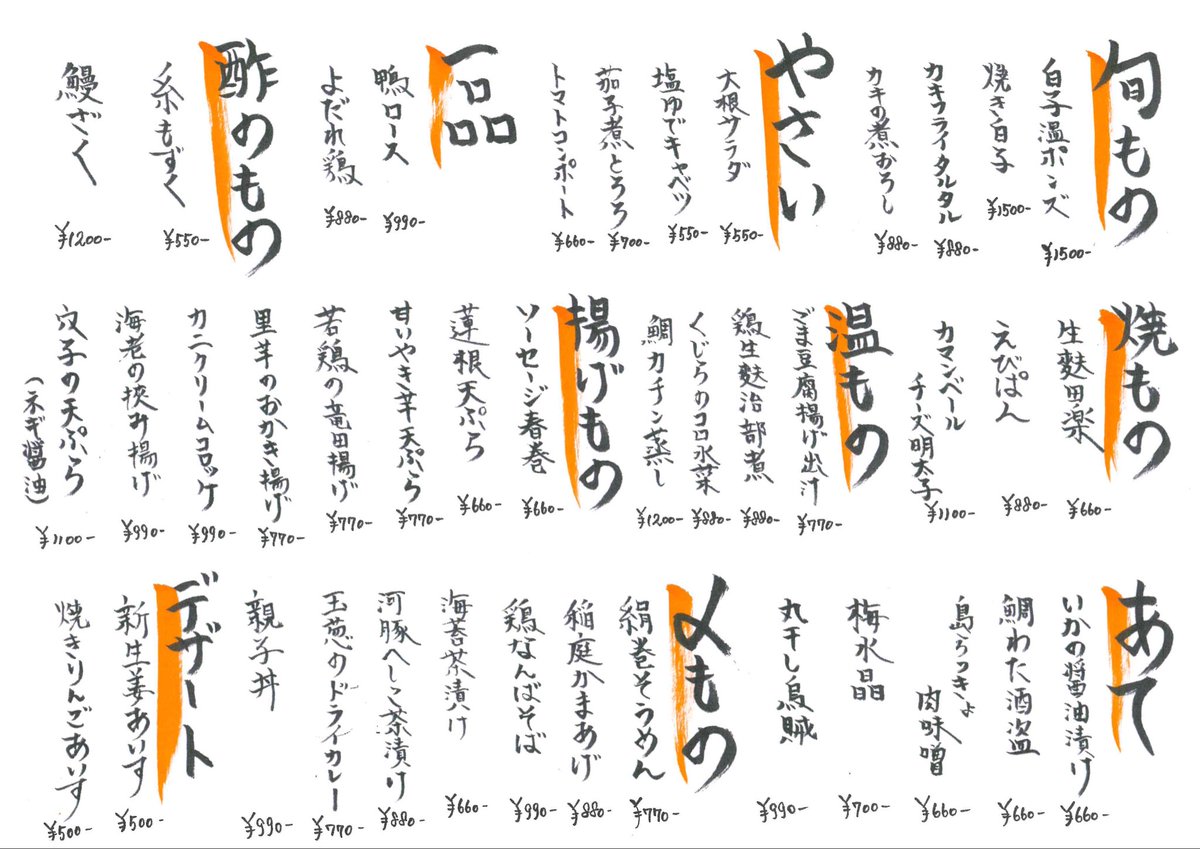 旬もの
白子温ポンズ
¥1500-
焼き白子
¥1500-
カキフライタルタル
¥880-
カキの煮おろし
¥880-
やさい
大根サラダ
¥550-
塩ゆでキャベツ
¥550-
茄子煮とろろ
¥700-
トマトコンポート
¥660-
一品
鴨ロース
¥990-
よだれ鶏
¥880-
酢のもの
糸もずく
¥550-
鰻ざく
¥1200-
焼もの
生麩田楽
¥660-
えびぱん
¥880-
カマンベール
チーズ明太子
¥1100-
温もの
ごま豆腐揚げ出汁
¥770-
鶏生麩治部煮
¥880-
くじらのコロ水菜
¥880-
鯛カチン蒸し
¥1200-
揚げもの
ソーセージ春巻
¥660-
蓮根天ぷら
¥660-
甘いやき芋天ぷら
¥770-
若鶏の竜田揚げ
¥770-
里芋のおかき揚げ
¥770-
カニクリームコロッケ
¥990-
海老の挟み揚げ
¥990-
穴子の天ぷら
(ネギ醤油)
¥1100-
あて
いかの醤油漬け
¥660-
鯛わた酒盗
¥660-
島らっきょ
肉味噌
¥660-
梅水晶
¥700-
丸干し烏賊
¥990-
〆もの
絹巻そうめん
¥770-
稲庭かまあげ
¥880-
鶏なんばそば
¥990-
海苔茶漬け
¥660-
河豚へしこ茶漬け
¥880-
玉葱のドライカレー
¥770-
親子丼
¥990-
デザート
新生姜あいす
¥500-
焼きりんごあいす
¥500-